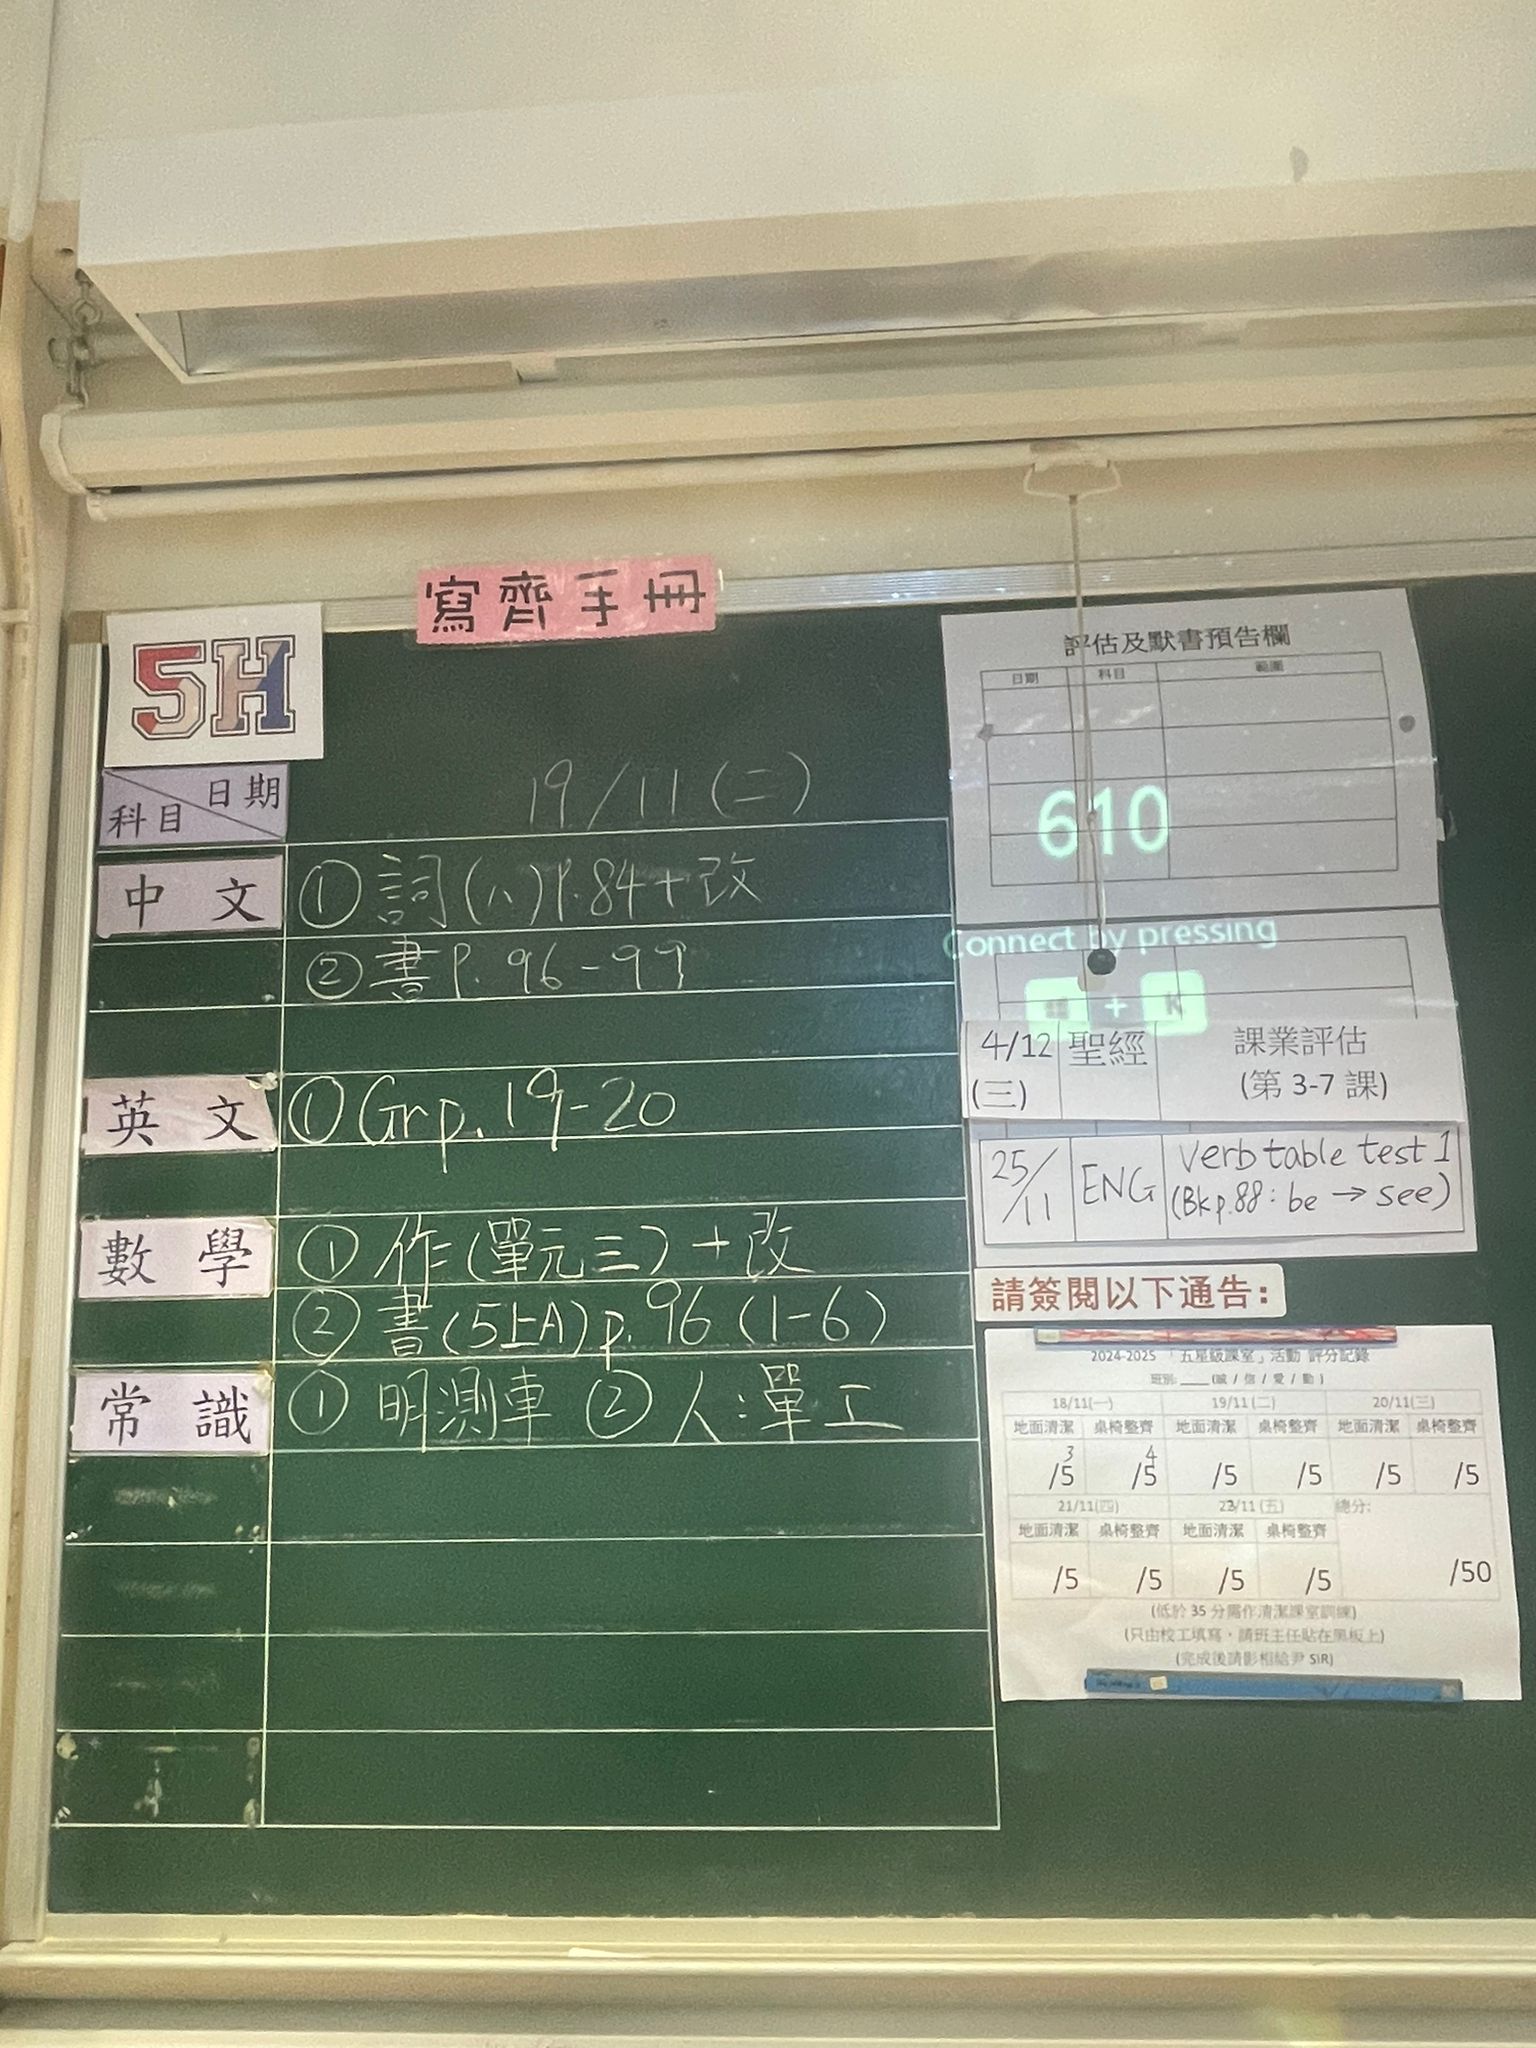 寫齊手冊
5H
日期
科目
19/11(二)
中文
①詞(八)P.84+改
②書P.96-99
英文
①Gr p.19-20
數學
①作(單元三)+改
②書(5上A)p.96(1-6)
常識
①明測車 ②人:單工
評估及默書預告欄
日期 科目 範圍
610
Connect by pressing
+ K
4/12
(三)
聖經
課業評估
(第 3-7 課)
25/11
ENG
Verb table test 1
(Bk p.88: be → see)
請簽閱以下通告:
2024-2025 「五星級課室」活動 評分記錄
班別: ____ (誠 / 信 / 愛 / 勤 )
18/11(一) 19/11(二) 20/11(三)
地面清潔 桌椅整齊 地面清潔 桌椅整齊 地面清潔 桌椅整齊
3/5 4/5 /5 /5 /5 /5
21/11(四) 22/11(五) 總分:
地面清潔 桌椅整齊 地面清潔 桌椅整齊
/5 /5 /5 /5 /50
(低於 35 分需作清潔課室訓練)
(只由校工填寫，請班主任貼在黑板上)
(完成後請影相給尹 SIR)